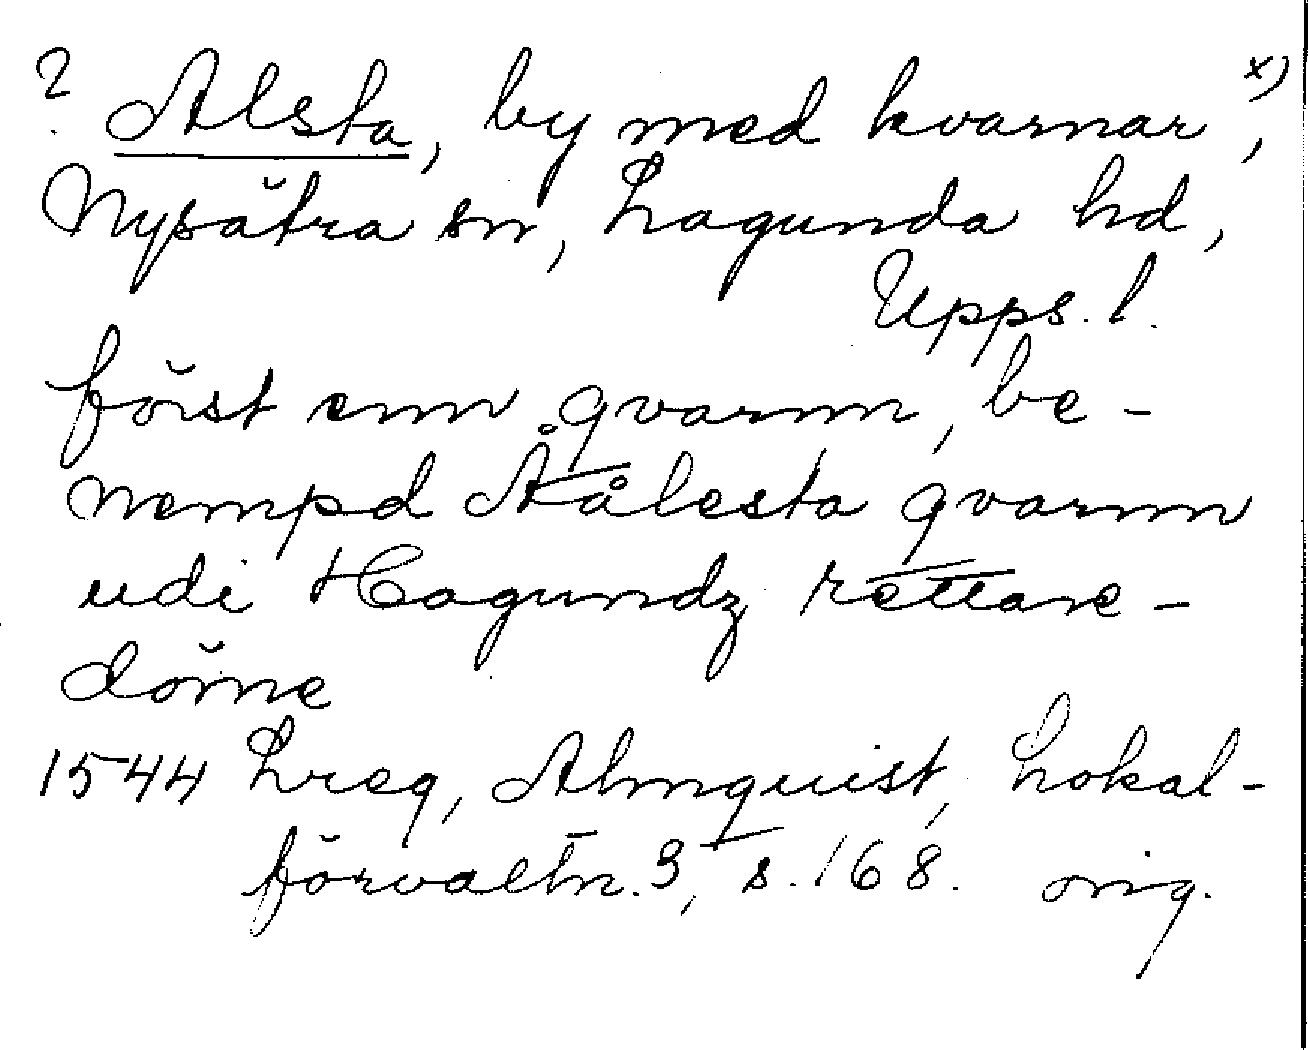 ? Alsta, by med kvarnar x),
Nysätra sn, Lagunda hd,
Upps. l.
först enn qvarnn, be-
nempd Åålesta qvarnn
udi Hagundz rettare-
döme
1544 Lreg, Almquist, Lokal-
förvaltn. 3, s. 168. orig.